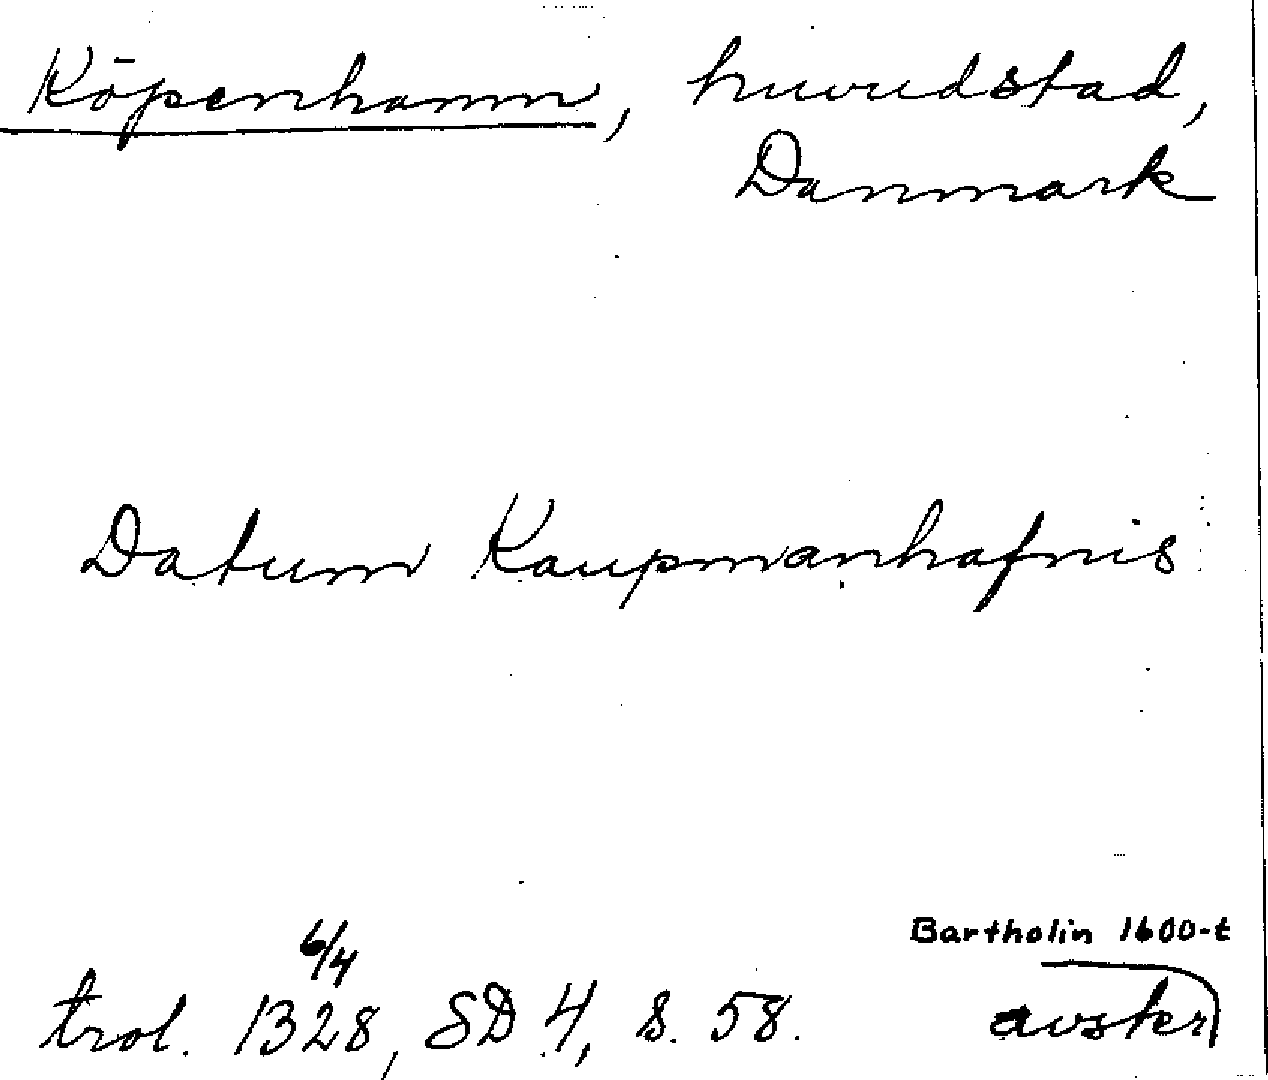 Köpenhamn, huvudstad,
Danmark
Datum Kaupmanhafnis
6/4
trol. 1328, SD 4, s. 58.
Bartholin 1600-t
avskr